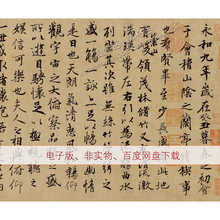 永和九年歲在癸丑暮春之初會
于會稽山陰之蘭亭脩稧事
也羣賢畢至少長咸集此地
有崇山峻領茂林脩竹又有清流激
湍暎帶左右引以為流觴曲水
列坐其次雖無絲竹管弦之
盛一觴一詠亦足以暢敘幽情
是日也天朗氣清惠風和暢仰
觀宇宙之大俯察品類之盛
所以遊目騁懷足以極視聽之
娛信可樂也夫人之相與俯仰
电子版、非实物、百度网盘下载